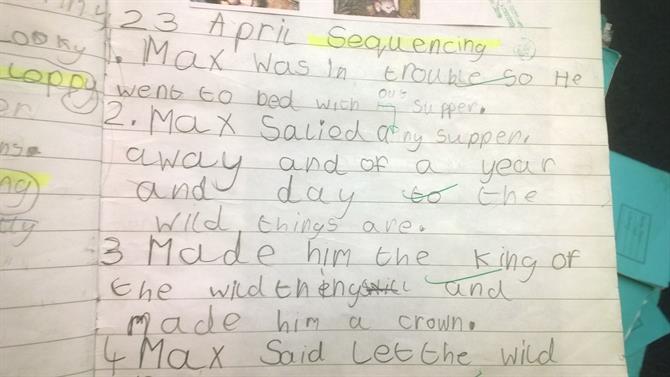 23 April Sequencing
1. Max was in trouble so He
went to bed with out supper.
2. Max Salied any supper.
away and of a year
and day to the
wild things are.
3 Made him the King of
the wild things and
made him a crown.
4 Max Said Let the wild
ooky
loppy